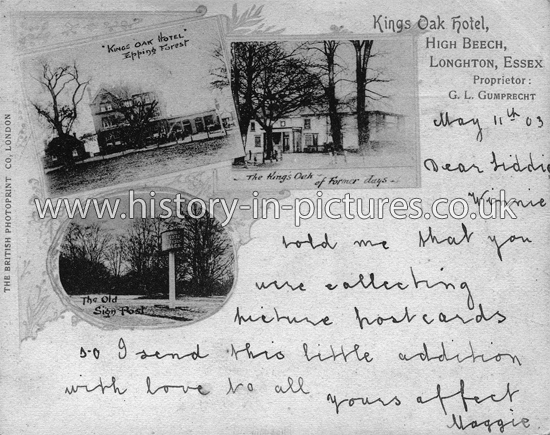 Kings Oak Hotel,
HIGH BEECH,
LONGHTON, ESSEX
Proprietor:
G. L. GUMPRECHT
"KINGS OAK HOTEL"
Epping Forest
The Kings Oak
of Former days
The Old
Sign Post
THE BRITISH PHOTOPRINT CO, LONDON
www.history-in-pictures.co.uk
May 11th 03
Dear
Winnie
told me that you
were collecting
picture postcards
so I send this little addition
with love to all
yours affect
Maggie